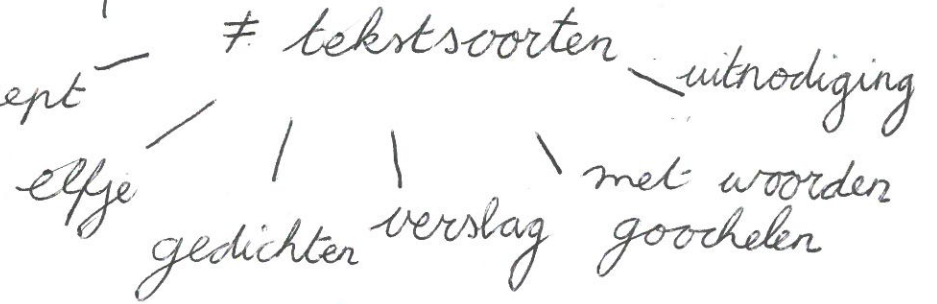 ≠ tekstsoorten
uitnodiging
ept
elfje
gedichten
verslag
met woorden
goochelen